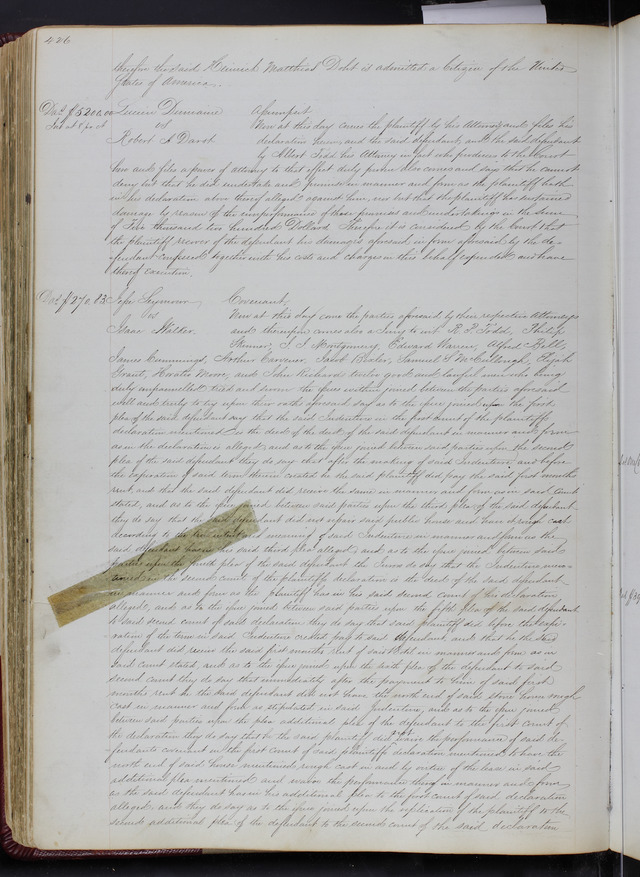 426
therefor the said Heinrich Matthias Dohl is admitted a Citizen of the United
States of America.
Lucien Dumaine Assumpsit
vs Now at this day comes the plaintiff by his Attorney and files his
Robert A Barnt declaration herein and the said defendant, and the said defendant
by Albert Todd his Attorney in fact who produces to the Court
here and files a power of attorney to that effect duly proven also comes and says that he cannot
deny but that he did undertake and promise in manner and form as the plaintiff hath
in his declaration above thereof alleged against him, nor but that the plaintiff has sustained
damage by reason of the nonperformance of those promises and undertakings in the sum
of Five thousand two hundred Dollars Therefore it is considered by the Court that
the plaintiff recover of the defendant his damages aforesaid in form aforesaid by the de-
fendant confessed together with his cost and charges in this behalf expended and have
thereof execution.
Seymour Covenant,
vs Now at this day come the parties aforesaid by their respective Attorneys
Isaac Walker. and thereupon comes also a Jury to wit R. P. Todd, Philip
Skinner, S. I Montgomery, Edward Warren, Alfred Hall,
James Cummings, Arthur Jacob Samuel S. McCullough, Elijah
Grant, Horatio Moore, and John Richards twelve good and lawful men who being
duly empannelled tried and sworn the issues within joined between the parties aforesaid
well and truly to try upon their oaths aforesaid say as to the issue joined upon the first
plea of the said defendant say that the said Indenture in the first count of the plaintiffs
declaration mentioned is the deed of the said defendant in manner and form
as in the declaration is alleged, and as to the issue joined between said parties upon the second
plea of the said defendant they do say that after the making of said Indenture, and before
the expiration of said term therein created he the said plaintiff did pay the said first months
rent and that the said defendant did receive the same in manner and form as in said Count
stated, and as to the issue joined between said parties upon the third plea of the said defendant
they do say that the said defendant did not repair said public house and have it rough cast
according to the true intent and meaning of said Indenture in manner and form as the
said defendant has in his said third plea alleged, and as to the issue joined between said
parties upon the fourth plea of the said defendant the Jurors do say that the Indenture men-
tioned in the second count of the plaintiffs declaration is the deed of the said defendant
in manner and form as the plaintiff has in his said second count of his declaration
alleged, and as to the issue joined between said parties upon the fifth plea of the said defendant
to said second count of said declaration they do say that said plaintiff did before the expi-
ration of the term in said Indenture created pay to said defendant, and that he the said
defendant did receive the said first months rent of said in manner and form as in
said count stated, and as to the issue joined upon the sixth plea of the defendant to said
second count they do say that immediately after the payment to him of said first
months rent he the said defendant did not have the north end of said stone house rough
cast in manner and form as stipulated in said Indenture, and as to the issue joined
between said parties upon the plea additional plea of the defendant to the first count of
the declaration they do say that he the said plaintiff did not waive the performance of said de-
fendants covenant in the first count of said plaintiffs declaration mentioned to have the
north end of said house mentioned, rough cast in and by virtue of the lease in said
additional plea mentioned and waive the performance thereof in manner and form
as the said defendant has in his additional plea to the first count of said declaration
alleged, and they do say as to the issue joined upon the replication of the plaintiff to the
second additional plea of the defendant to the second count of the said declaration